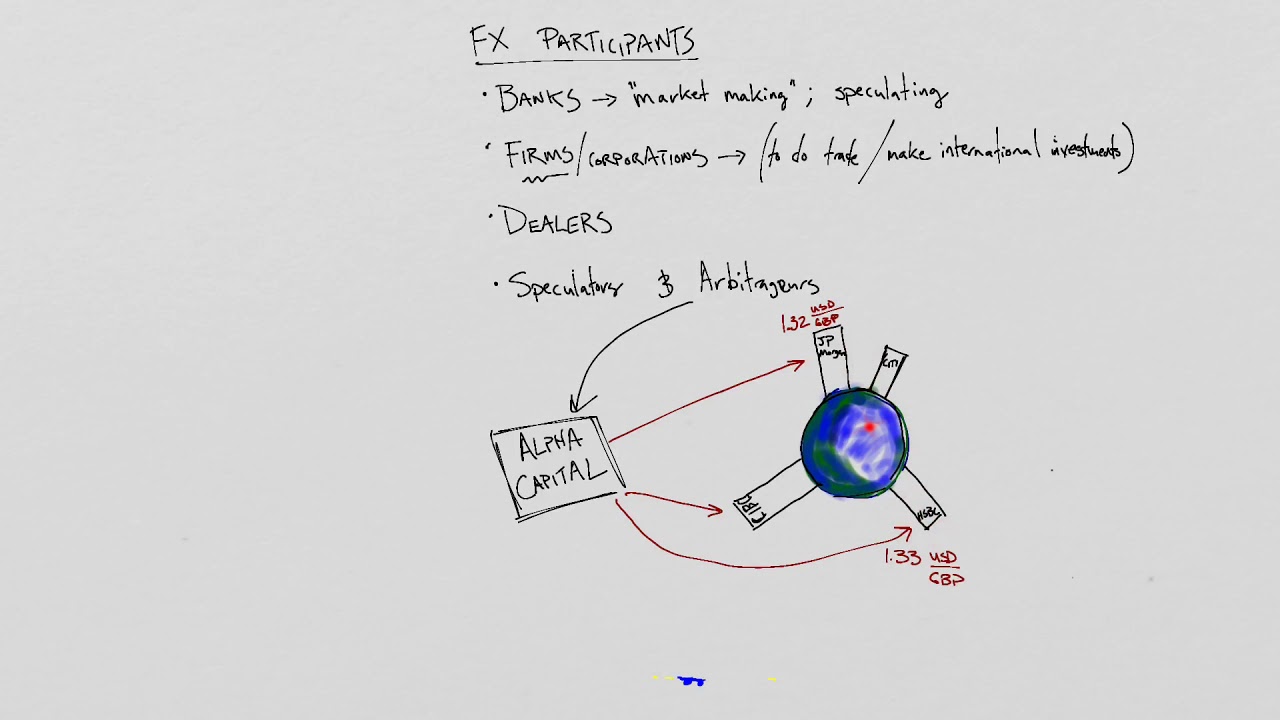 FX PARTICIPANTS
• BANKS → "market making" ; speculating
• FIRMS/CORPORATIONS → (to do trade / make international investments)
• DEALERS
• Speculators & Arbitrageurs
1.32 USD/GBP
JP Morgan
CITI
ALPHA
CAPITAL
CIBC
HSBC
1.33 USD/GBP